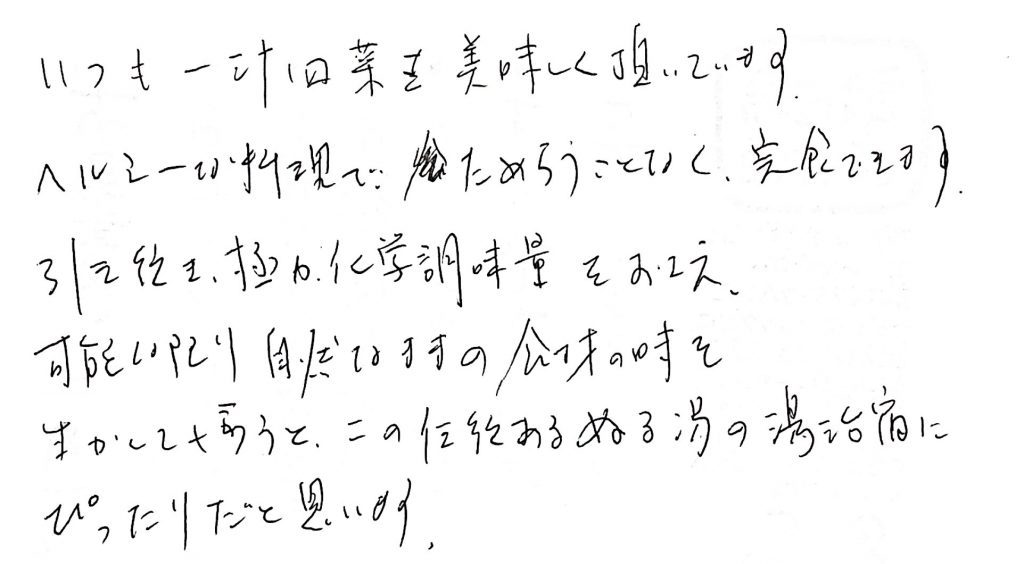 いつも一汁旧菜を美味しく頂いています。
ヘルシーな料理で、ためらうことなく、完食できます。
引き続き、極力、化学調味量をおさえ、
可能な限り自然なままの食材の時を
生かして貰うと、この伝統あるぬる湯の湯治宿に
ぴったりだと思います。